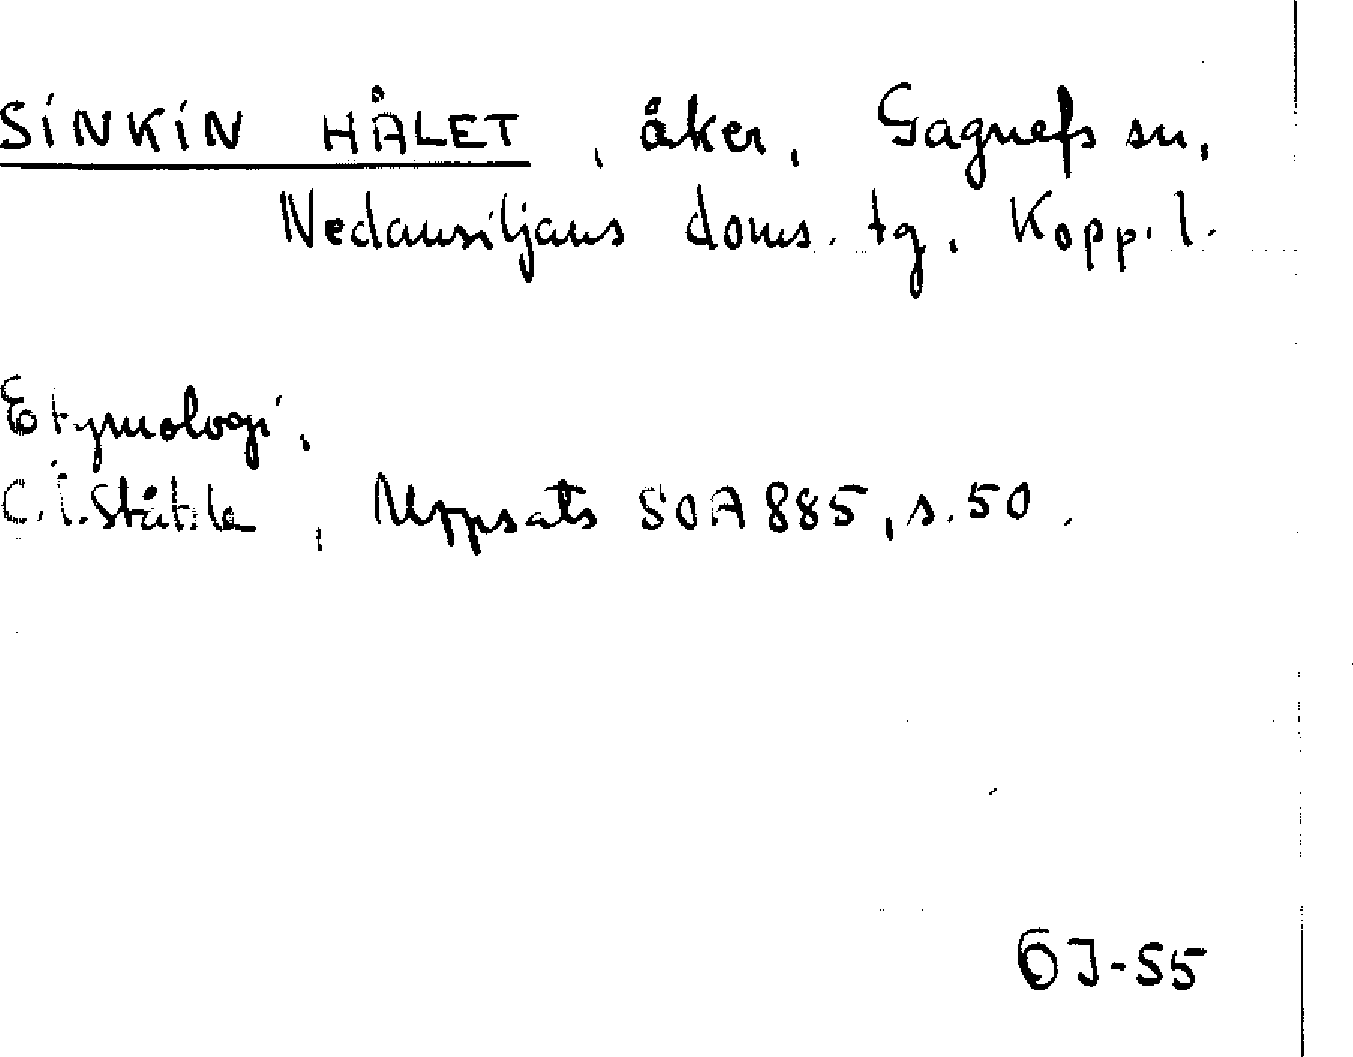 SINKIN HÅLET, åker, Gagnefs sn,
Nedansiljans doms. tg, Kopp. l.
Etymologi.
C.I. Ståhle, Uppsats SOA 885, s. 50.
ÖJ-55